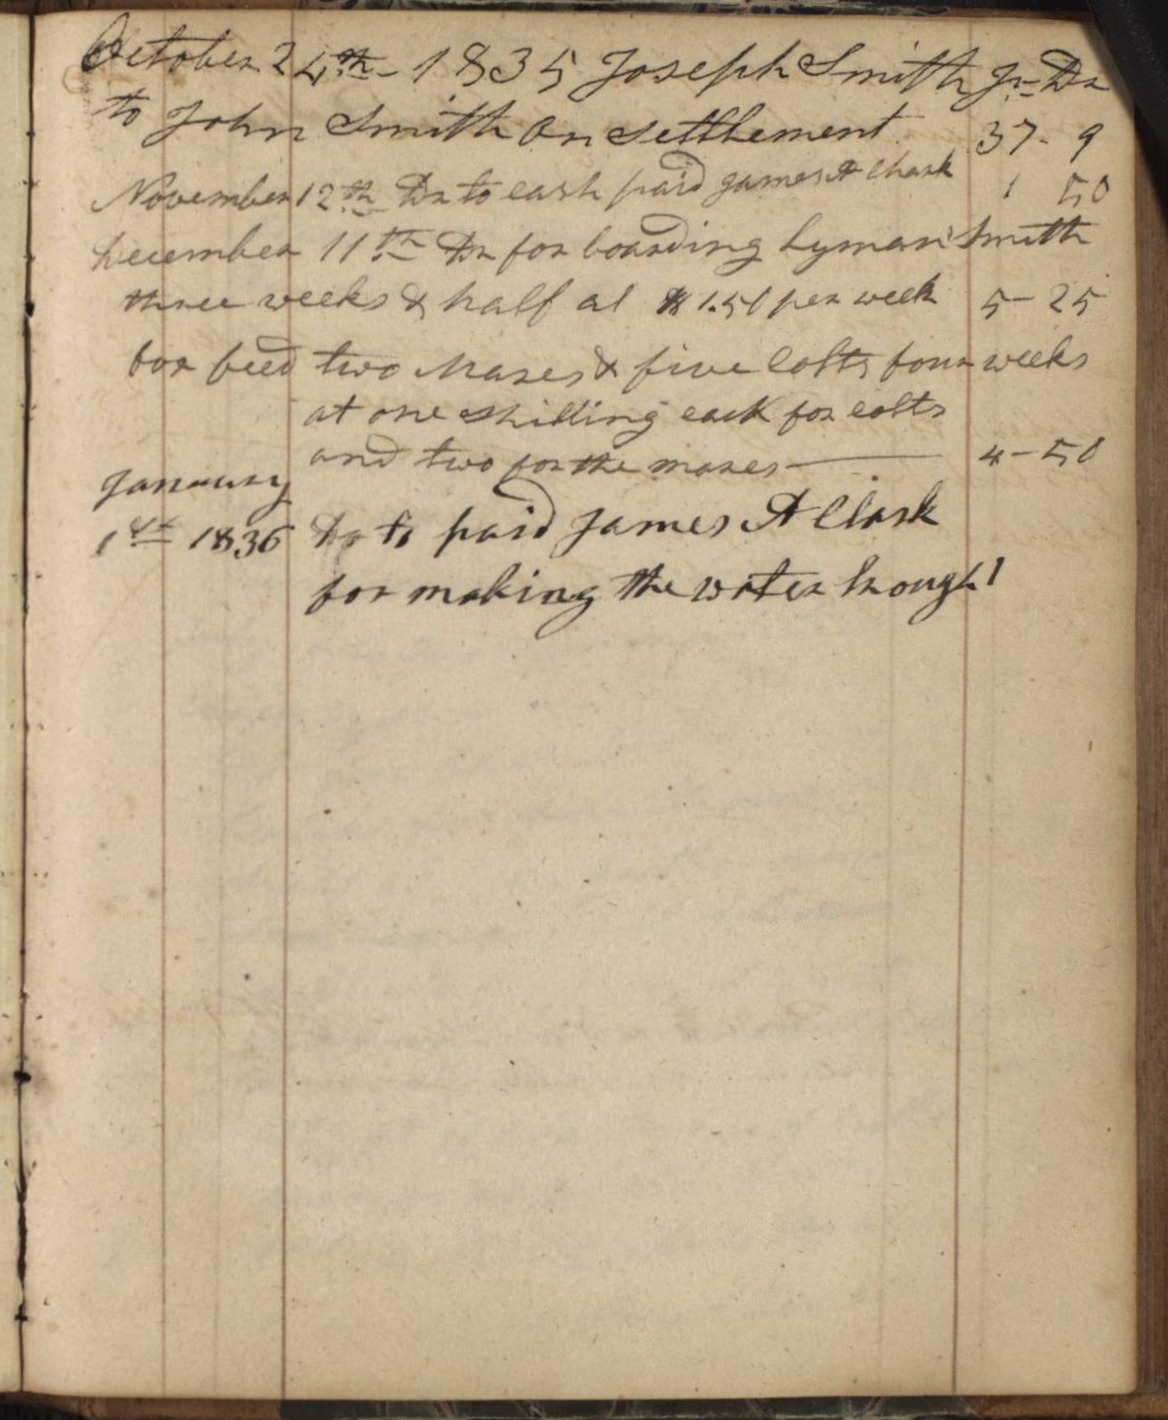 October 24th - 1835 Joseph Smith Jr Dr
to John Smith On settlement 37 - 9
November 12th Dr to cash paid James A Clark 1 50
December 11th Dr for boarding Lyman Smith
three weeks & half at $1.50 per week 5 - 25
for feed two Mares & five Colts four weeks
at one shilling each for colts
and two for the mares — 4 - 50
January
1st 1836 Dr to paid James A Clark
for making the water trough 1